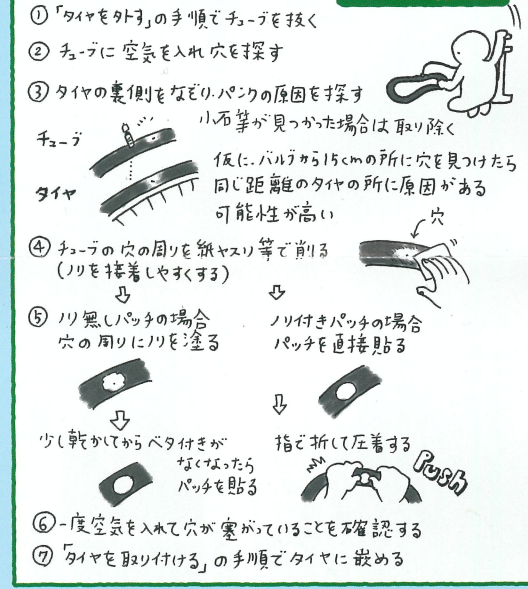 ①「タイヤを外す」の手順でチューブを抜く
② チューブに空気を入れ穴を探す
③ タイヤの裏側をなぞり、パンクの原因を探す
小石等が見つかった場合は取り除く
チューブ
タイヤ
仮に、バルブから15cmの所に穴を見つけたら
同じ距離のタイヤの所に原因がある
可能性が高い
穴
④ チューブの穴の周りを紙ヤスリ等で削る
(ノリを接着しやすくする)
⑤ ノリ無しパッチの場合
穴の周りにノリを塗る
ノリ付きパッチの場合
パッチを直接貼る
少し乾かしてからベタ付きが
なくなったら
パッチを貼る
指で折して圧着する
Push
⑥ 一度空気を入れて穴が塞がっていることを確認する
⑦「タイヤを取り付ける」の手順でタイヤに嵌める